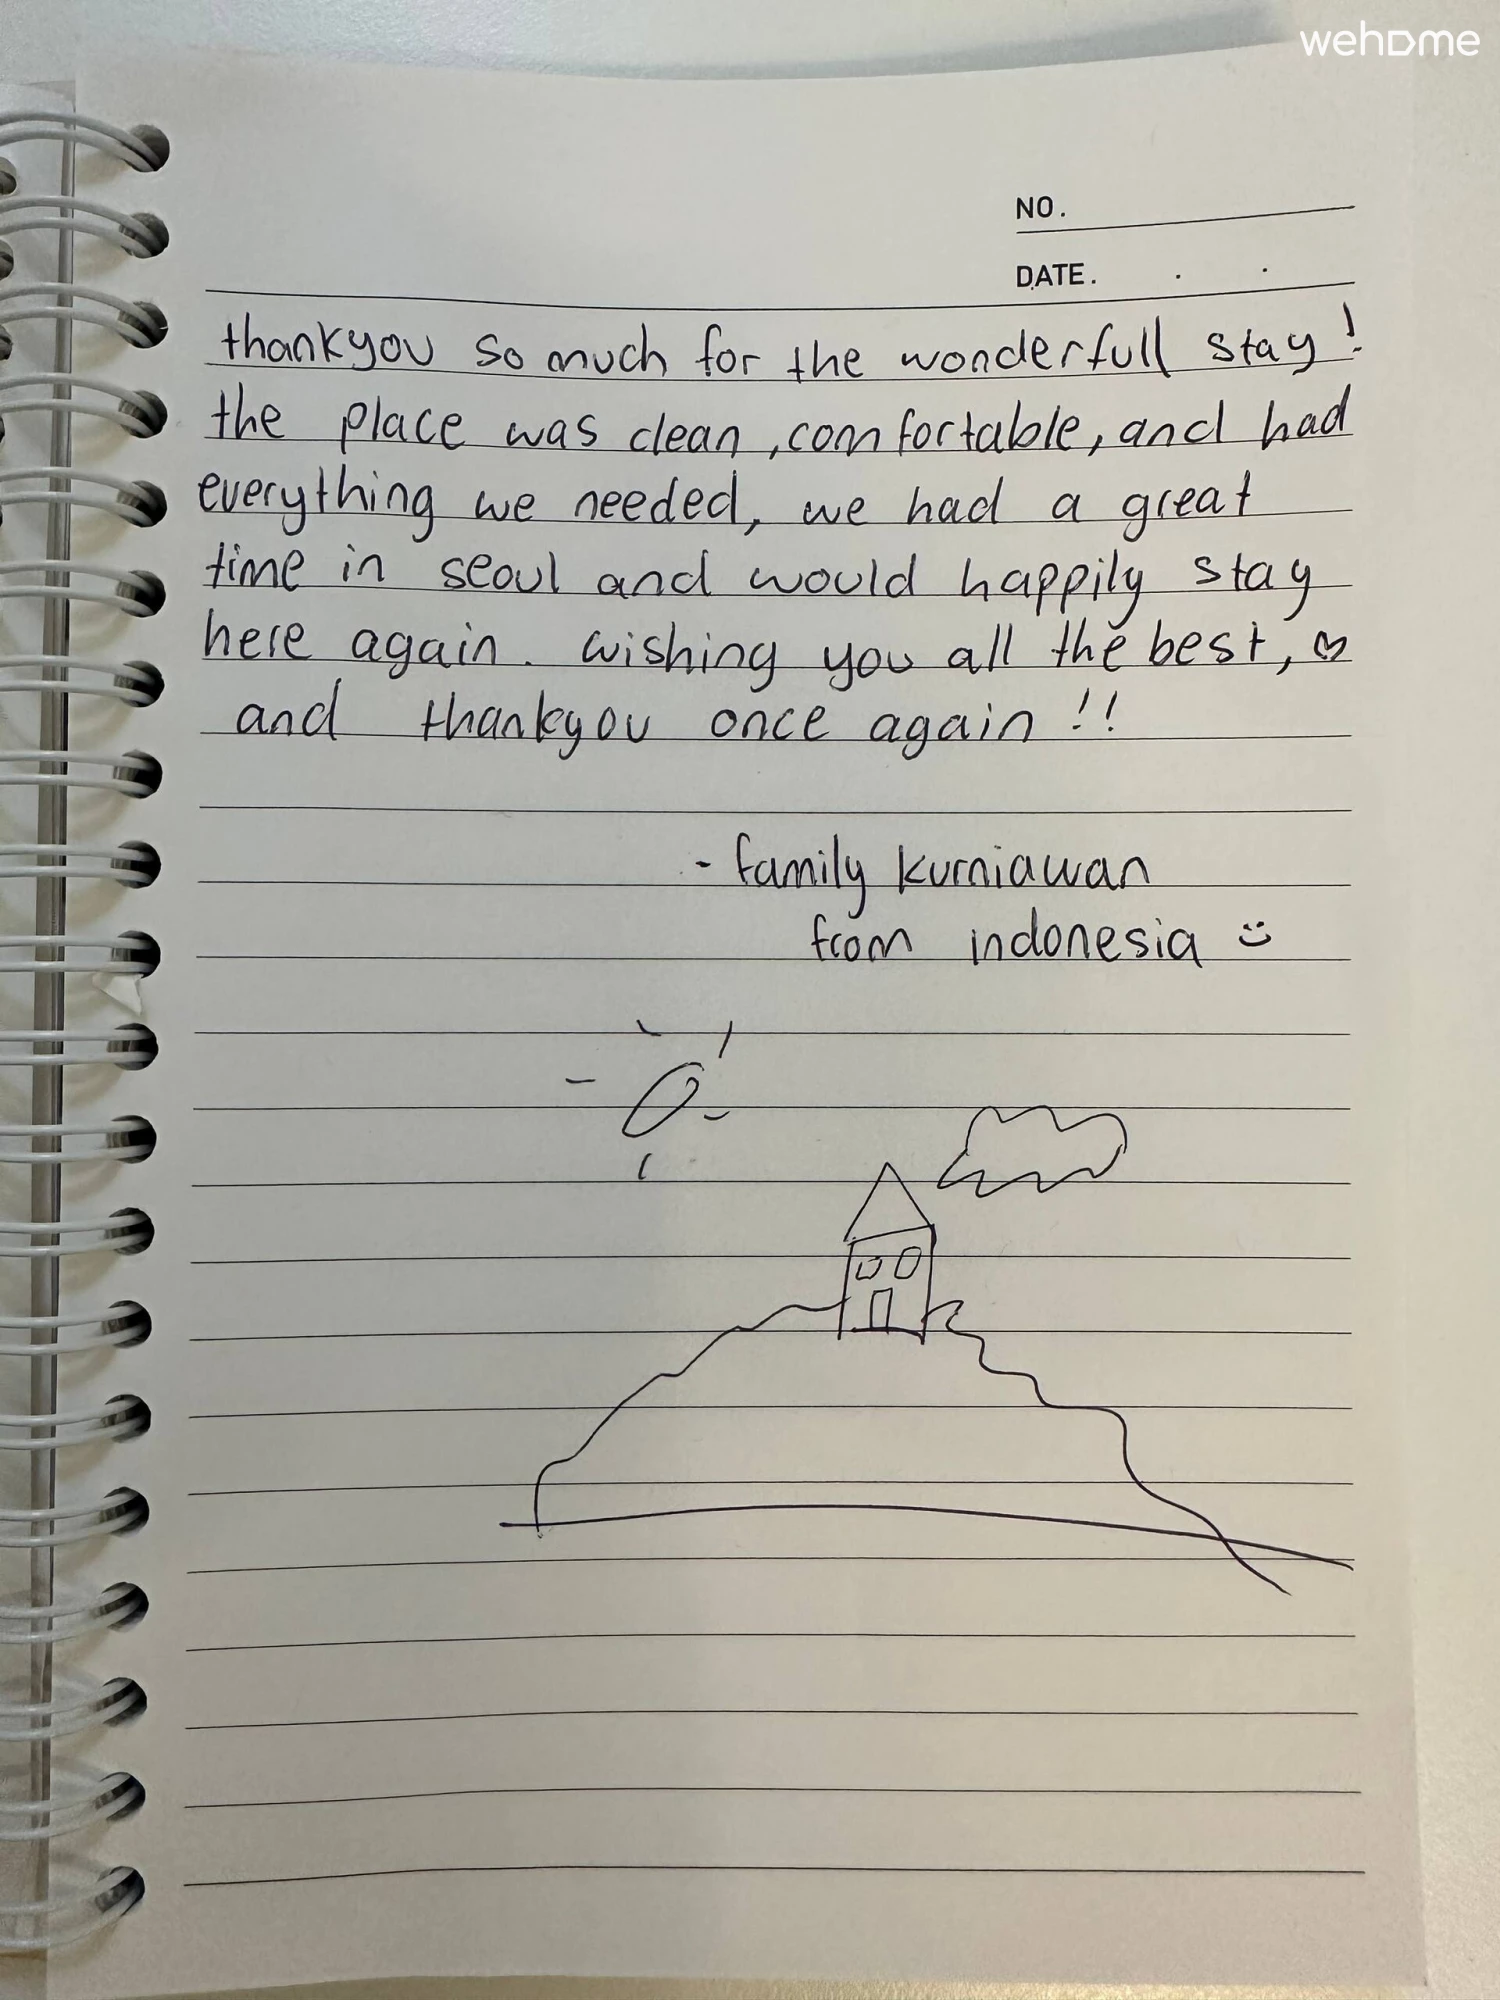 wehome
NO.
DATE. . .
thankyou so much for the wonderfull stay!
the place was clean, comfortable, and had
everything we needed, we had a great
time in seoul and would happily stay
here again. wishing you all the best, ♡
and thankyou once again !!
- family kurniawan
from indonesia :)